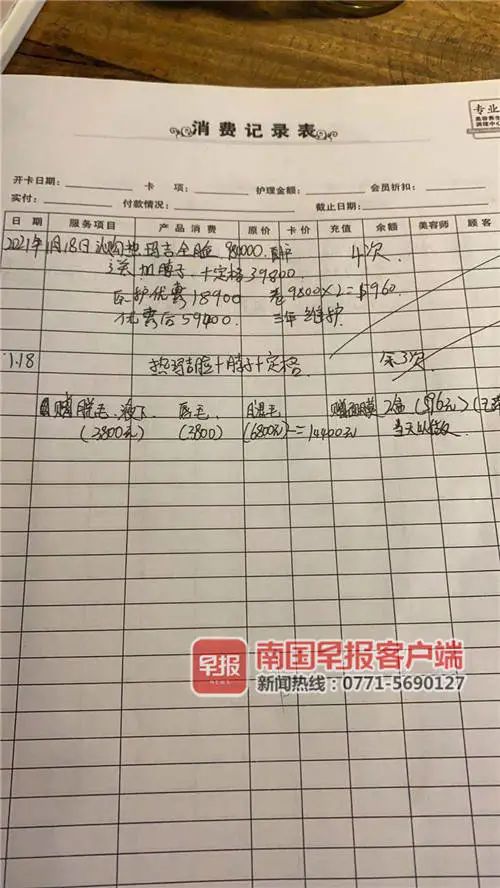 专业
消费记录表
开卡日期： 卡 项： 护理金额： 会员折扣：
实付： 付款情况： 截止日期：
日 期 服务项目 产品消费 原价 卡价 充值 余额 美容师 顾客
2021年1月18日 热玛吉全脸 98000 4次
送 脖子 + 定格 39800
优惠 18900 9800×2=
优惠后59400 三年 维护
1.18 热玛吉脸+脖子+定格 余3次
赠脱毛 腋下 唇毛 腿毛 赠面膜2盒 (596元)
(3800元) (3800) (6800元) = 14400元 当天
早报 南国早报客户端
NEWS 新闻热线：0771-5690127